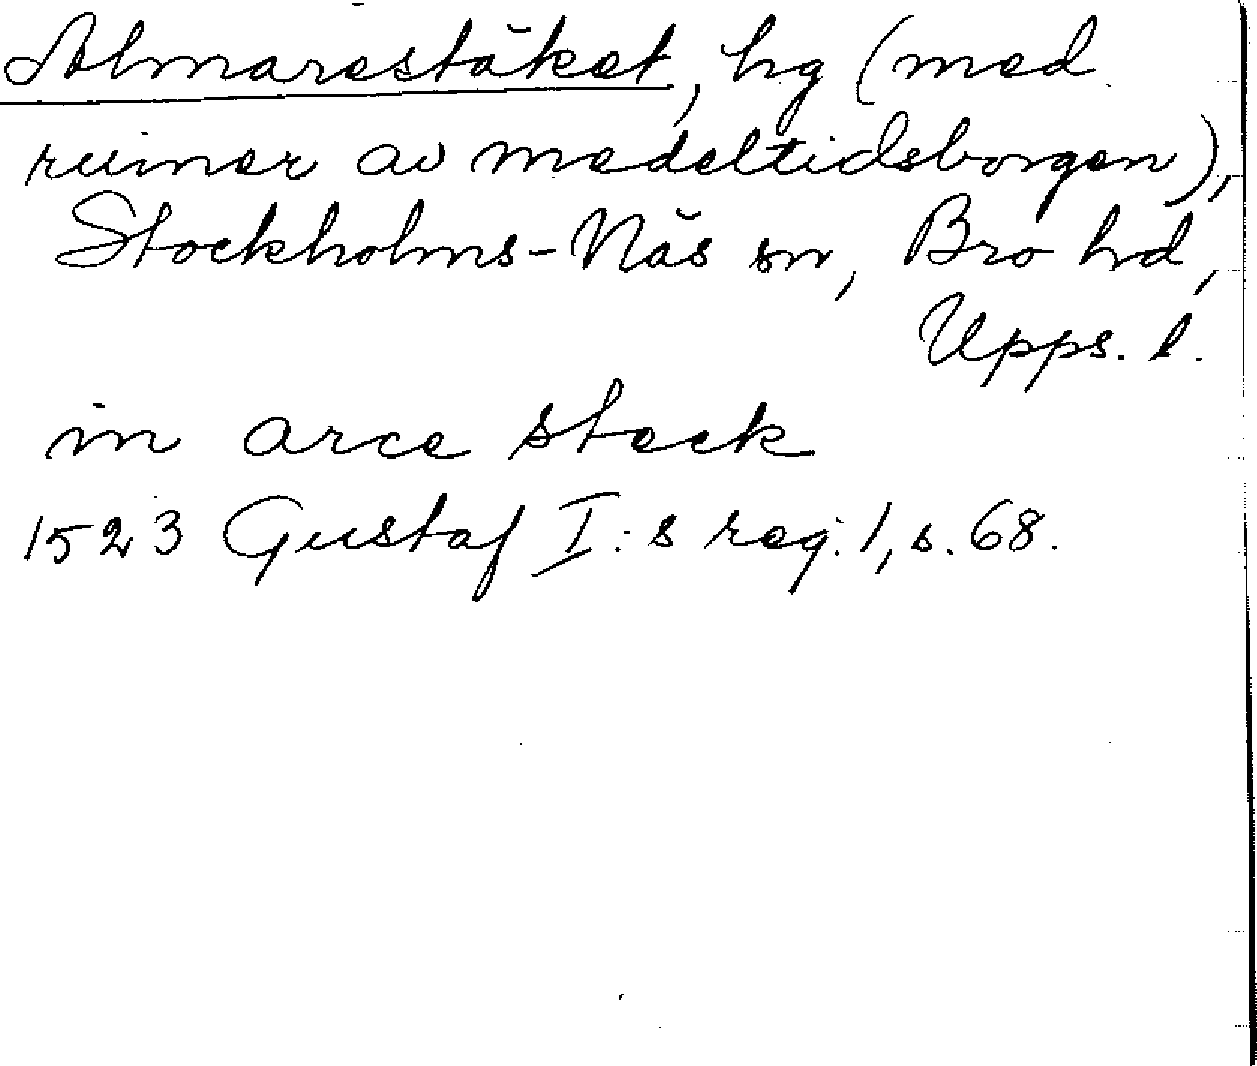 Almarestäket, hg (med
ruiner av medeltidsborgen),
Stockholms-Näs sn, Bro hd,
Upps. l.
in arce steck
1523 Gustaf I:s reg. 1, s. 68.